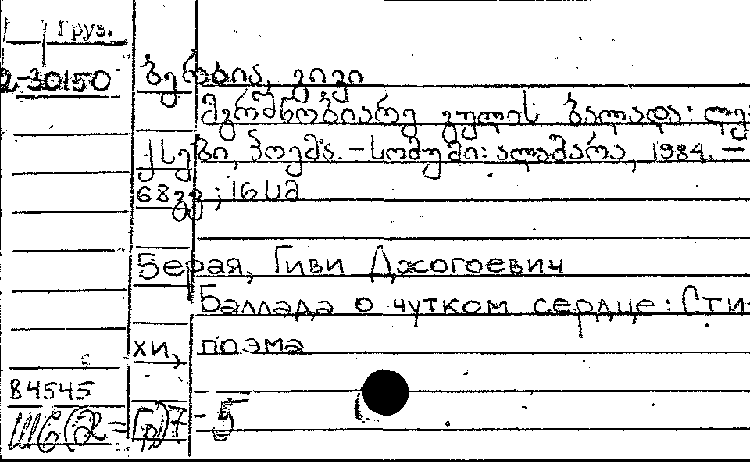 Груз.
2-30150
ბერაია, გივი
მგრძნობიარე გულის ბალადა: ლე-
ქსები, პოემა. – სოხუმი: ალაშარა, 1984. –
68გვ ; 16 სმ
Берая, Гиви Джогоевич
Баллада о чутком сердце: Сти-
хи, поэма
84545
Ш6(2=Гр)7-5